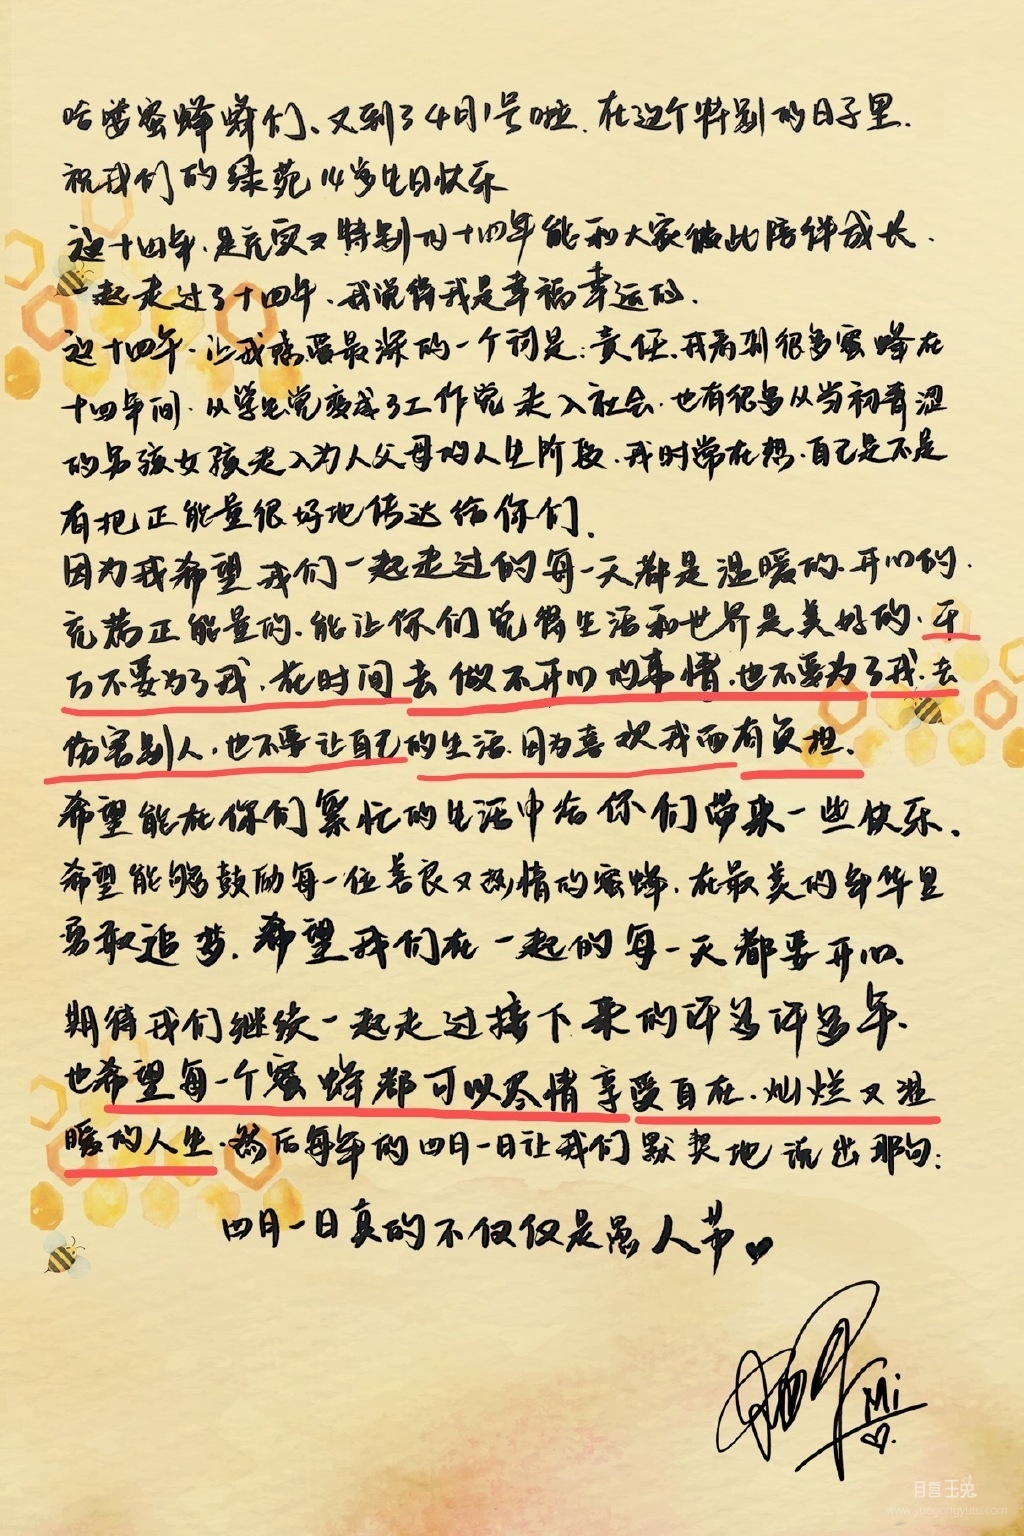 哈喽蜜蜂蜂们、又到了4月1号啦.在这个特别的日子里.
祝我们的绿苑14岁生日快乐
这十四年.是充实又特别的十四年能和大家彼此陪伴成长.
一起走过了十四年、我觉得我是幸福幸运的.
这十四年.让我感受最深的一个词是:责任.我看到很多蜜蜂在
十四年间.从学生党变成了工作党走入社会.也有很多从当初青涩
的男孩女孩走入为人父母的人生阶段.我时常在想.自己是不是
有把正能量很好地传达给你们.
因为我希望我们一起走过的每一天都是温暖的.开心的.
充满正能量的.能让你们觉得生活和世界是美好的.千
万不要为了我.花时间去做不开心的事情.也不要为了我.去
伤害别人.也不要让自己的生活.因为喜欢我而有负担.
希望能在你们繁忙的生活中给你们带来一些快乐.
希望能够鼓励每一位善良又热情的蜜蜂.在最美的年华里
勇敢追梦.希望我们在一起的每一天都要开心.
期待我们继续一起走过接下来的许多许多年.
也希望每一个蜜蜂都可以尽情享受自在.灿烂又温
暖的人生.然后每年的四月一日让我们默契地说出那句:
四月一日真的不仅仅是愚人节
Mi